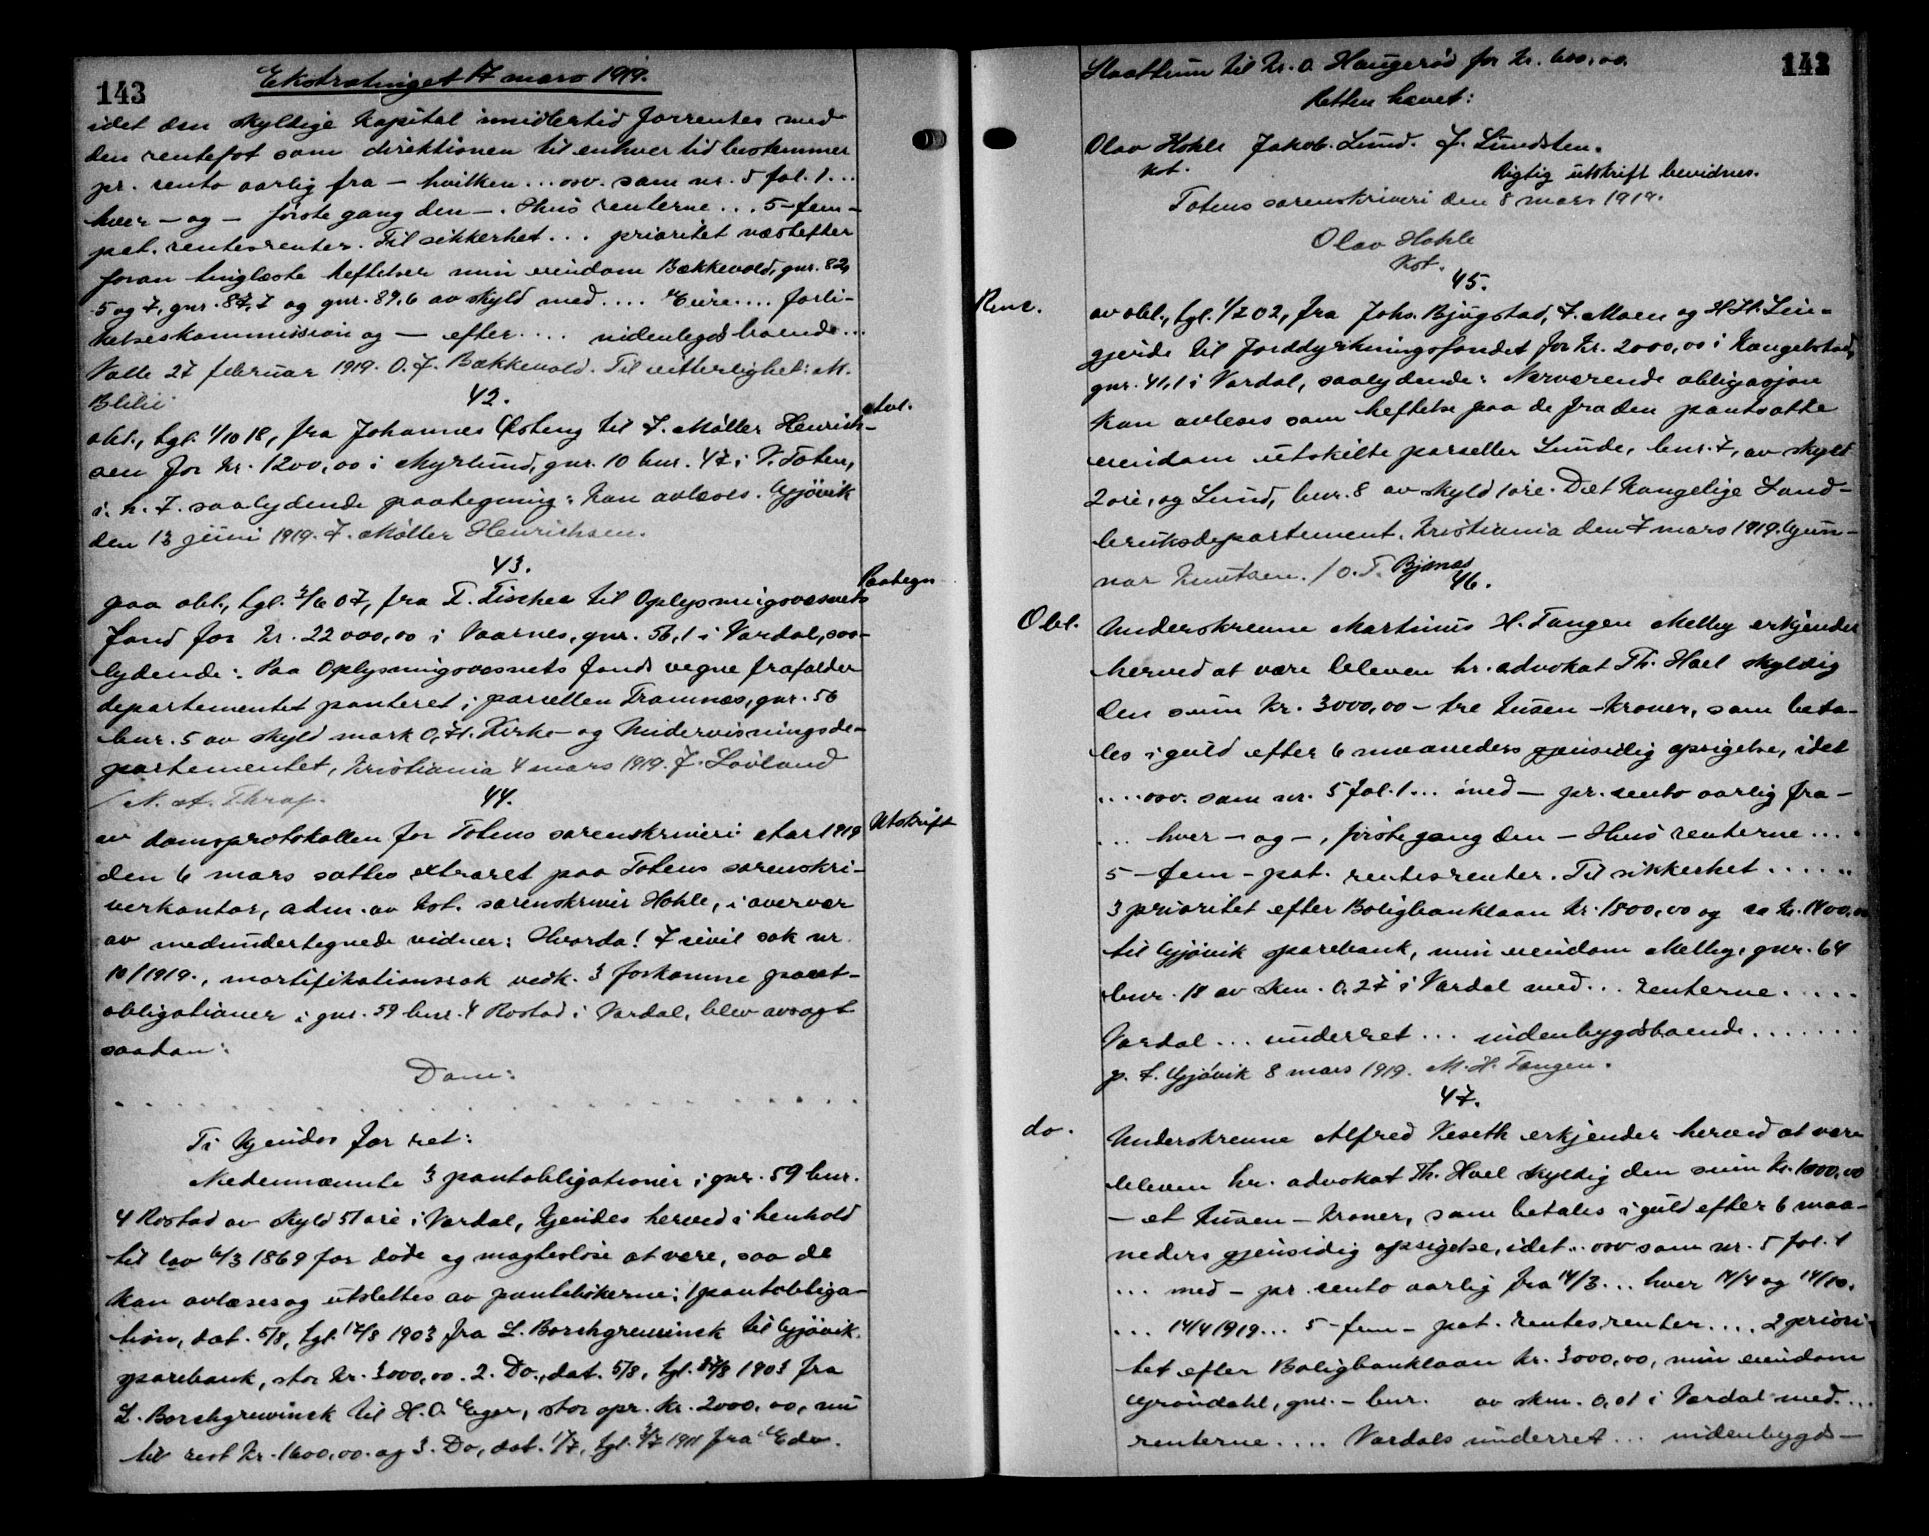 143
Ekstratinget 17 mars 1919.
idet den skyldige kapital imidlertid forrentes med
den rentefot som direktionen til enhver tid bestemmer
pr. cento aarlig fra – hvilken ... osv. som nr. 5 fol. 1 ...
hver – og – første gang den –. Hvis renterne ... 5 – fem –
pct. rentesrenter. Til sikkerhet ... prioritet næstefter
foran tinglæste heftelser min eiendom Bækkevold, gnr. 82,
5 og 7, gnr. 87,7 og gnr. 89,6 av skyld med .... Eier .... forli-
kelseskommission og – efter .... utenbygds boende ...
Valle 27 februar 1919. O. J. Bækkevold. Til vitterlighet: M.
Blilie
42.
Avl.
obl., tgl. 1/10 18, fra Johannes Østeng til F. Møller Henrich-
sen for kr. 1200,00 i Myrlund, gnr. 10 bnr. 47 i V. Toten,
i. h. t. saalydende paategning: Kan avlæses. Gjøvik
den 13 juni 1919. F. Møller Henrichsen.
43.
Paategn
paa obl., tgl. 3/6 07, fra T. Fischer til Oplysningsvæsnets
fond for kr. 22000,00 i Vaarnes, gnr. 56,1 i Vardal, saa-
lydende: Paa Oplysningsvæsnets fonds vegne frafalder
departementet panteret i parcellen Framnæs, gnr. 56
bnr. 5 av skyld mark 0,71. Kirke- og Undervisningsde-
partementet, Kristiania 4 mars 1919. J. Løvland
/ N. A. Thrap.
44.
Utskrift
av domsprotokollen for Totens sorenskriveri: Aar 1919
den 6 mars sattes ekstraret paa Totens sorenskri-
verkontor, adm. av kst. sorenskriver Hohle, i overvær
av medundertegnede vidner: Hvorda! I sivil sak nr.
10/1919., mortifikationssak vedk. 3 forkomne pant-
obligationer i gnr. 59 bnr. 4 Rostad i Vardal, blev avsagt
saadan:
Dom:
. . . . . . . . . . . .
Ti kjendes for ret:
Nedennævnte 3 pantobligationer i gnr. 59 bnr.
4 Rostad av skyld 51 øre i Vardal, kjendes herved i henhold
til lov 6/3 1869 for døde og magtesløse at være, saa de
kan avlæses og utslettes av pantebøkerne: 1 pantobliga-
tion, dat. 5/8, tgl. 17/8 1903 fra L. Borchgrevinck til Gjøvik
sparebank, stor kr. 3000,00. 2. Do., dat. 5/8, tgl. 17/8 1903 fra
L. Borchgrevinck til H. O. Eger, stor opr. kr. 2000,00, nu
til rest kr. 1600,00. og 3. Do, dat. 1/7, tgl. 3/7 1911 fra Edv.
142
Slaattum til Kr. O. Haugerød for kr. 600,00.
Retten hævet:
Olav Hohle Jakob Lund. J. Lundsten.
kst.
Rigtig utskrift bevidnes.
Totens sorenskriveri den 8 mars 1919.
Olav Hohle
kst.
45.
av obl., tgl. 1/2 02, fra Johs. Bjugstad, F. Moen og H. H. Lin-
gjerde til Jorddyrkningsfondet for kr. 2000,00 i Kangelstad,
gnr. 41,1 i Vardal, saalydende: Nærværende obligasjon
kan avleses som heftelse paa de fra den pantsatte
eiendom utskilte parseller Lunde, bnr. 7, av skyld
2 øre, og Lund, bnr. 8 av skyld 1 øre. Det kongelige Land-
bruksdepartement, Kristiania den 7 mars 1919. Gun-
nar Knutsen. / O. T. Bjanes
46.
Obl.
Underskrevne Martinus H. Tangen Melby erkjender
herved at være bleven hr. advokat Th. Hoel skyldig
den sum kr. 3000,00 – tre tusen – kroner, som beta-
les i guld efter 6 maaneders gjensidig opsigelse, idet
.... osv. som nr. 5 fol. 1 ... med – pr. cento aarlig fra –
... hver – og –, første gang den – Hvis renterne ....
5 – fem – pct. rentesrenter. Til sikkerhet ......
3 prioritet efter Boligbanklaan kr. 1800,00 og ca kr. 1400,00
til Gjøvik sparebank, min eiendom Melby, gnr. 64
bnr. 18 av skm. 0,27 i Vardal med ... renterne .....
Vardal ... underret ... utenbygdsboende .......
p. t. Gjøvik 8 mars 1919. M. H. Tangen.
47.
do.
Underskrevne Alfred Veseth erkjender herved at være
bleven hr. advokat Th. Hoel skyldig den sum kr. 1000,00
– et tusen – kroner, som betales i guld efter 6 maa-
neders gjensidig opsigelse, idet .. osv som nr. 5 fol. 1
... med – pr. cento aarlig fra 14/3 ... hver 14/4 og 14/10.
... 14/4 1919 ... 5 – fem – pct. rentesrenter .... 2 priori-
tet efter Boligbanklaan kr. 3000,00, min eiendom
Grøndahl, gnr. – bnr. av skm. 0,01 i Vardal med ...
renterne .... Vardals underret ... utenbygds –